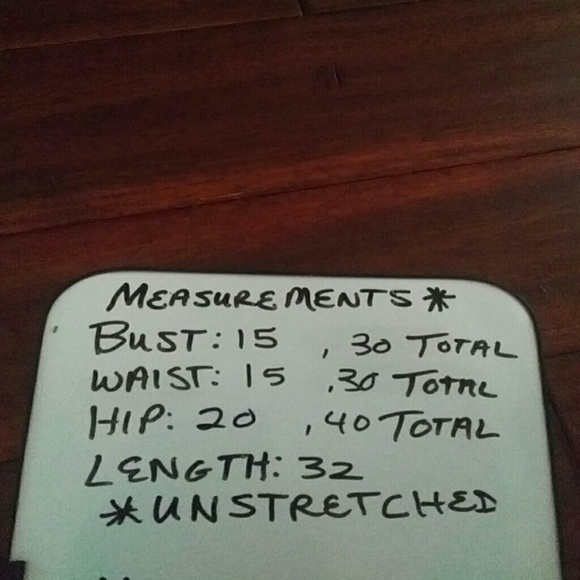 MEASUREMENTS *
BUST: 15 , 30 TOTAL
WAIST: 15 , 30 TOTAL
HIP: 20 , 40 TOTAL
LENGTH: 32
* UNSTRETCHED